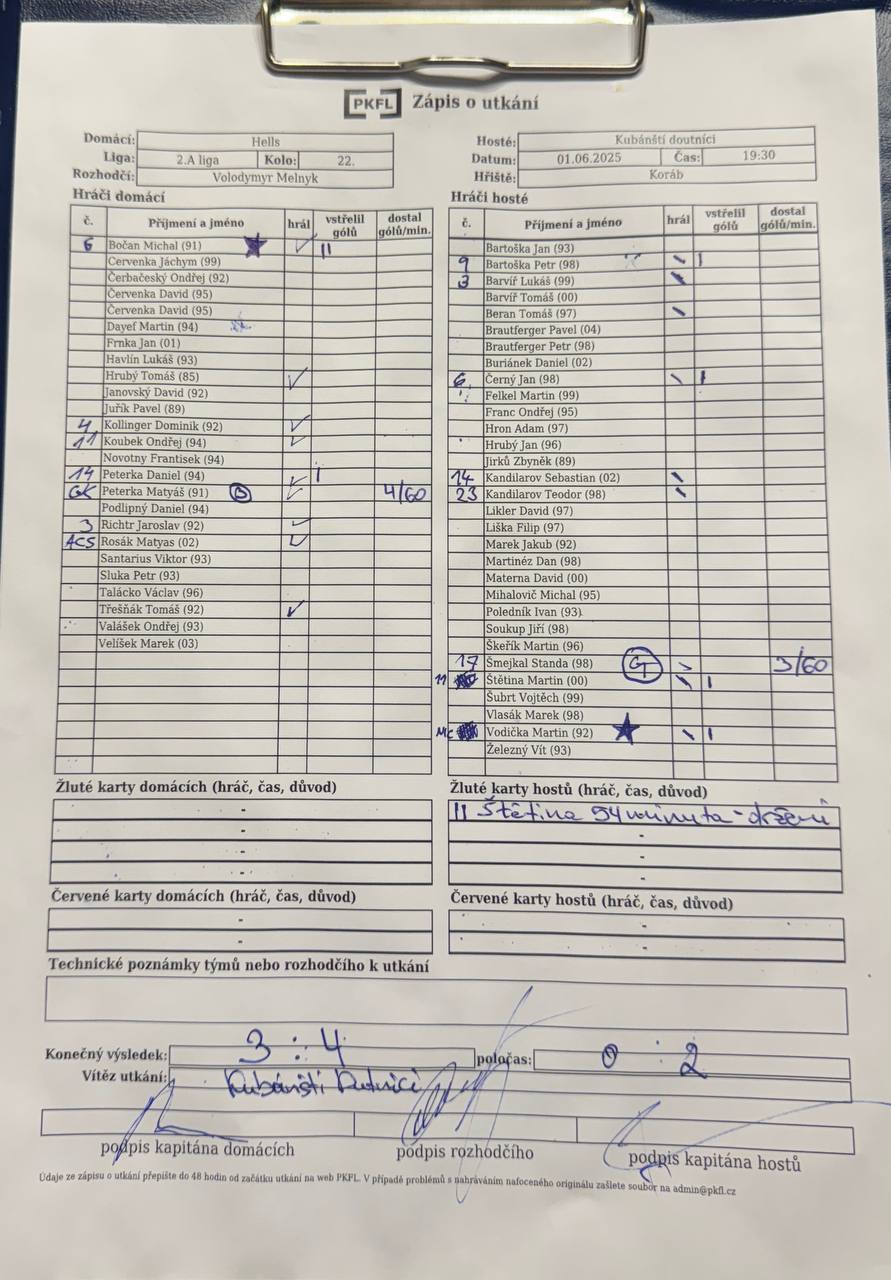 PKFL Zápis o utkání
Domácí: Hells
Liga: 2.A liga Kolo: 22.
Rozhodčí: Volodymyr Melnyk
Hosté: Kubánští doutníci
Datum: 01.06.2025 Čas: 19:30
Hřiště: Koráb
Hráči domácí
č. Příjmení a jméno hrál vstřelil gólů dostal gólů/min.
6 Bočan Michal (91) II
Červenka Jáchym (99)
Čerbačeský Ondřej (92)
Červenka David (95)
Červenka David (95)
Dayef Martin (94)
Frnka Jan (01)
Havlín Lukáš (93)
Hrubý Tomáš (85)
Janovský David (92)
Juřík Pavel (89)
4 Kollinger Dominik (92)
11 Koubek Ondřej (94)
Novotny Frantisek (94)
14 Peterka Daniel (94) I
GK Peterka Matyáš (91) B 4/60
Podlipný Daniel (94)
3 Richtr Jaroslav (92)
ACS Rosák Matyas (02)
Santarius Viktor (93)
Sluka Petr (93)
Talácko Václav (96)
Třešňák Tomáš (92)
Valášek Ondřej (93)
Velíšek Marek (03)
Hráči hosté
č. Příjmení a jméno hrál vstřelil gólů dostal gólů/min.
Bartoška Jan (93)
9 Bartoška Petr (98) I
3 Barvíř Lukáš (99)
Barvíř Tomáš (00)
Beran Tomáš (97)
Brautferger Pavel (04)
Brautferger Petr (98)
Buriánek Daniel (02)
6 Černý Jan (98) I
Felkel Martin (99)
Franc Ondřej (95)
Hron Adam (97)
Hrubý Jan (96)
Jirků Zbyněk (89)
14 Kandilarov Sebastian (02)
23 Kandilarov Teodor (98)
Likler David (97)
Liška Filip (97)
Marek Jakub (92)
Martinéz Dan (98)
Materna David (00)
Mihalovič Michal (95)
Poledník Ivan (93)
Soukup Jiří (98)
Škeřík Martin (96)
17 Šmejkal Standa (98) GT 3/60
11 Štětina Martin (00) I
Šubrt Vojtěch (99)
Vlasák Marek (98)
MC Vodička Martin (92) I
Železný Vít (93)
Žluté karty domácích (hráč, čas, důvod)
-
-
-
-
Žluté karty hostů (hráč, čas, důvod)
11 Štětina 54 minuta - držení
-
-
-
Červené karty domácích (hráč, čas, důvod)
-
-
Červené karty hostů (hráč, čas, důvod)
-
-
Technické poznámky týmů nebo rozhodčího k utkání
Konečný výsledek: 3 : 4 poločas: 0 : 2
Vítěz utkání: Kubánští
podpis kapitána domácích podpis rozhodčího podpis kapitána hostů
Údaje ze zápisu o utkání přepište do 48 hodin od začátku utkání na web PKFL. V případě problémů s nahráváním nafoceného originálu zašlete soubor na admin@pkfl.cz